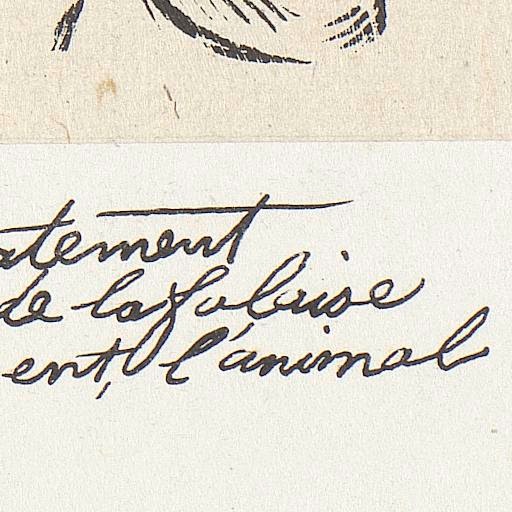 atement
de la falaise
ent, l'animal